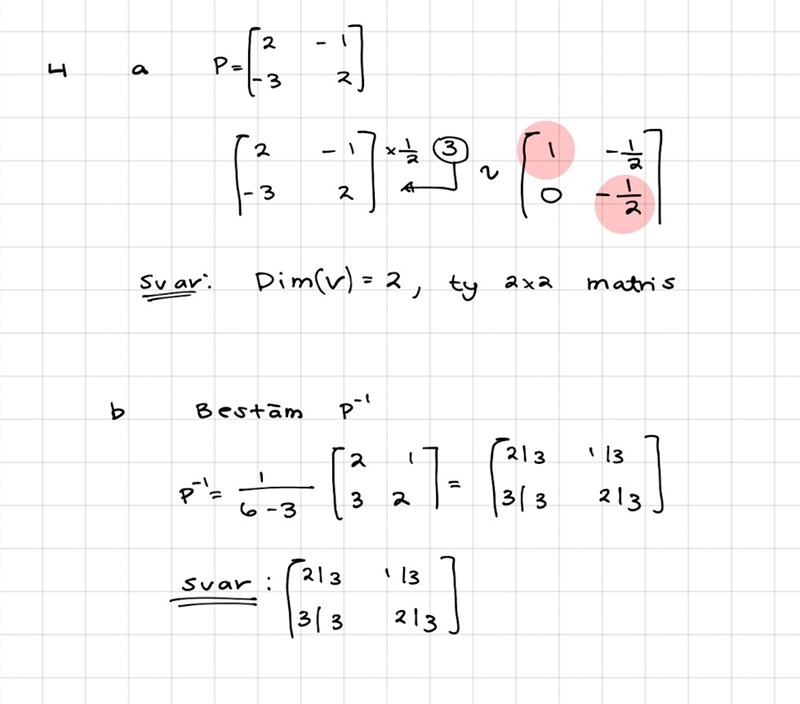 4 a P = [2 -1; -3 2]
[2 -1; -3 2] × 1/2 ③ ~ [1 -1/2; 0 -1/2]
Svar: Dim(V) = 2, ty 2×2 matris
b Bestäm P⁻¹
P⁻¹ = 1/(6-3) [2 1; 3 2] = [2/3 1/3; 3/3 2/3]
Svar: [2/3 1/3; 3/3 2/3]